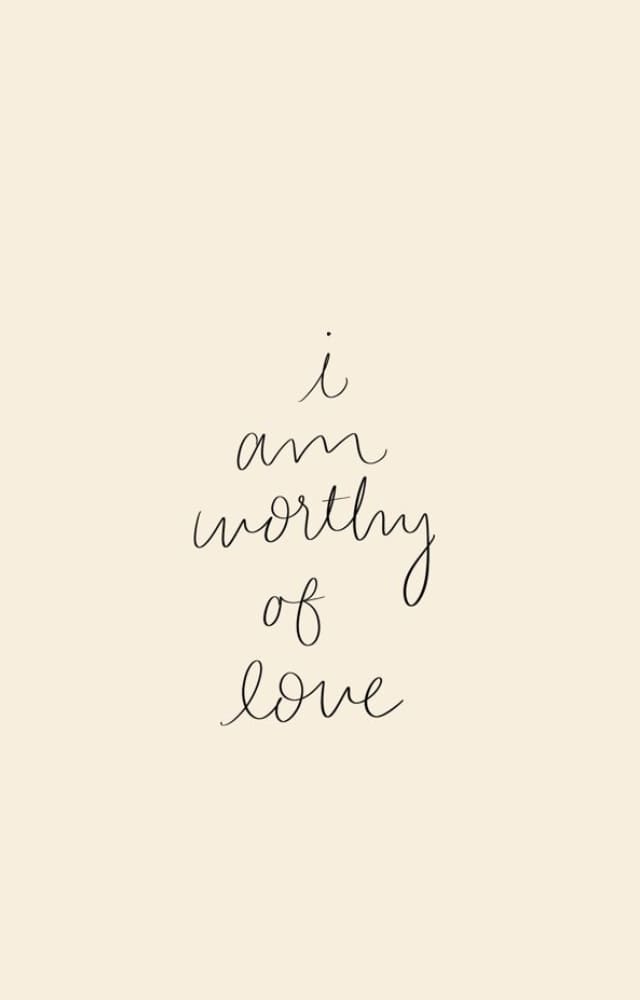 i
am
worthy
of
love